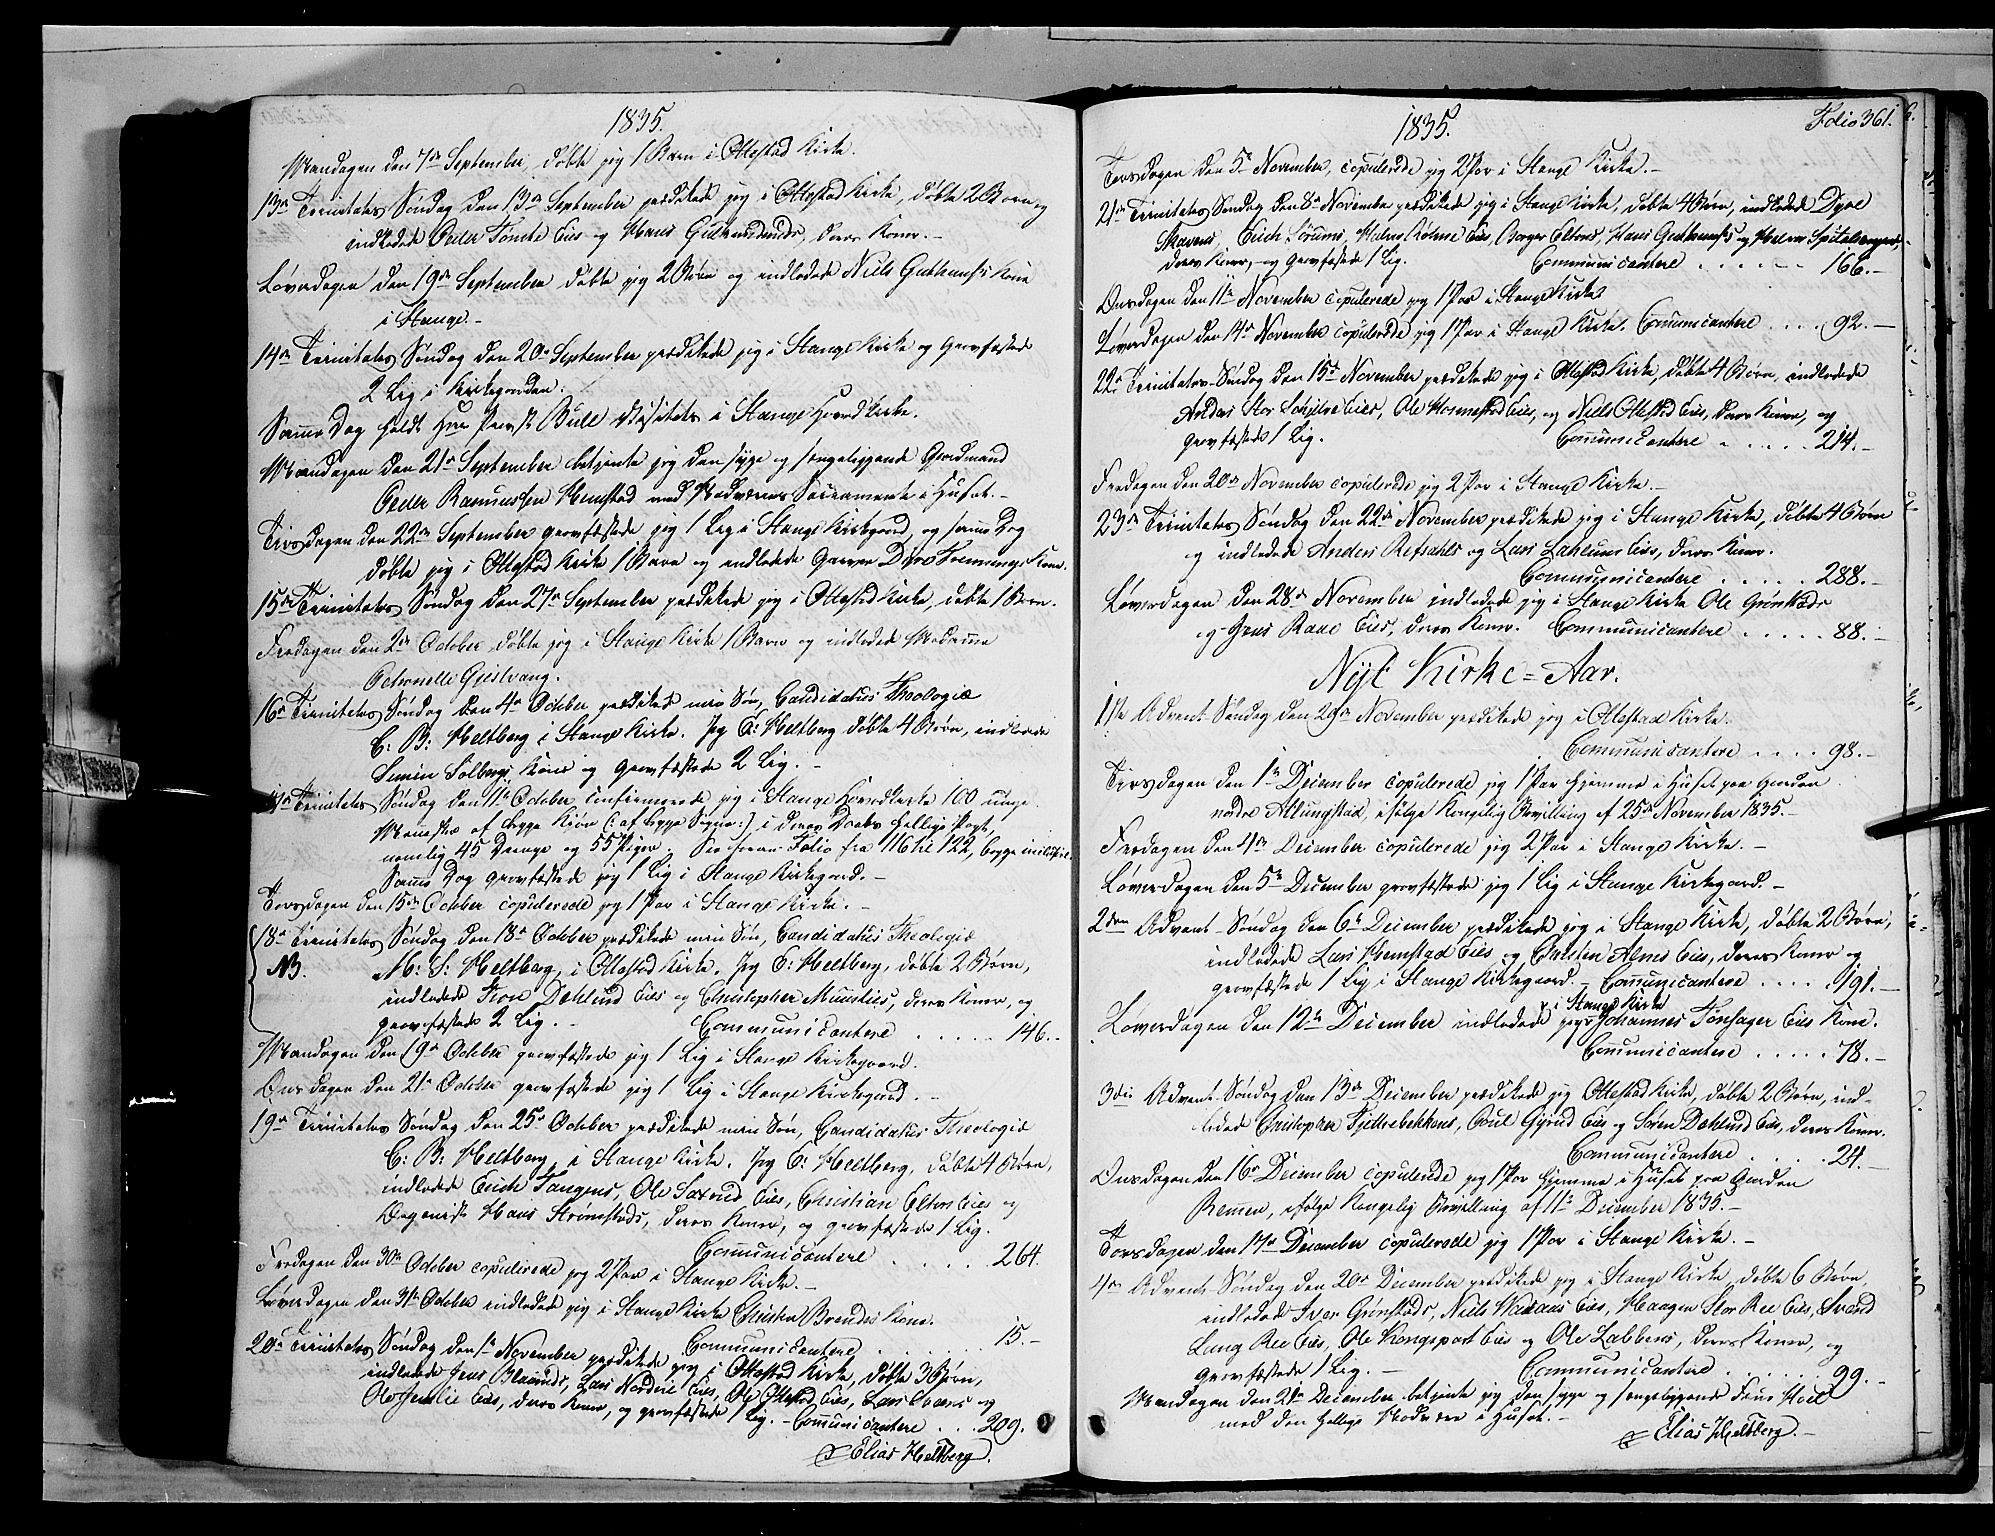 1835.
Mandagen den 7de September, døbte jeg 1 Barn i Ottestad Kirke.
13de Trinitatis Søndag den 13de September prædikede jeg i Ottestad Kirke, døbte 2 Børn og
indledede Peder Tomte Eies og Hans Guthuus, deres Koner.
Løverdagen den 19de September døbte jeg 2 Børn og indledede Niels Guthuus's Kone
i Stange.
14de Trinitatis Søndag den 20de September prædikede jeg i Stange Kirke og gravfæstede
2 Lig i Kirkegaarden.
Samme Dag holdt Hr. Provst Bull Visitats i Stange Hoved Kirke.
Mandagen den 21de September betjente jeg den syge og sengeliggende Gaardmand
Peder Rasmussen Hemstad med Nadverens Sacramente i Huset.
Tirsdagen den 22de September gravfæstede jeg 1 Lig i Stange Kirkegaard, og samme Dag
døbte jeg i Ottestad Kirke 1 Barn og indledede Garver Kone.
15de Trinitatis Søndag den 27de September prædikede jeg i Ottestad Kirke, døbte 1 Barn.
Fredagen den 2den October døbte jeg i Stange Kirke 1 Barn og indledede Madame
Petronelle Gjestvang.
16de Trinitatis Søndag den 4de October prædikede min Søn, Candidatus Theologiæ
C: B: Heltberg i Stange Kirke. Jeg E: Heltberg døbte 4 Børn, indledede
Simen Solbergs Kone og gravfæstede 2 Lig.
17de Trinitatis Søndag den 11te October confirmerede jeg i Stange Hovedkirke 100 unge
Mennesker af begge Kjøn (: af begge Sogne:) i deres Daabs hellige Pagt,
nemlig 45 Drenge og 55 Piger. See foran Folio fra 116 til 122, begge inclusive.
Samme Dag gravfæstede jeg 1 Lig i Stange Kirkegaard.
Torsdagen den 15de October copulerede jeg 1 Par i Stange Kirke.
18de Trinitatis Søndag den 18de October prædikede min Søn, Candidatus Theologiæ
NB. H: S: Heltberg, i Ottestad Kirke. Jeg E: Heltberg, døbte 2 Børn,
indledede Iver Dehlund Eies og Christopher Muusties, deres Koner, og
gravfæstede 2 Lig. Communicantere . . . . . 146.
Mandagen den 19de October gravfæstede jeg 1 Lig i Stange Kirkegaard.
Onsdagen den 21de October gravfæstede jeg 1 Lig i Stange Kirkegaard.
19de Trinitatis Søndag den 25de October prædikede min Søn, Candidatus Theologiæ
C: B: Heltberg, i Stange Kirke. Jeg E: Heltberg, døbte 4 Børn,
indledede Erich Tangens, Ole Saxrud Eies, Christian Elton Eies og
Organist Hans Strømstads, deres Koner, og gravfæstede 1 Lig.
Communicantere . . . . . 264.
Fredagen den 30de October copulerede jeg 2 Par i Stange Kirke.
Løverdagen den 31te October indledede jeg i Stange Kirke Christen Brendes Kone.
Communicantere . . . . . 15.
20de Trinitatis Søndag den 1te November prædikede jeg i Ottestad Kirke, døbte 3 Børn,
indledede Jens Blærud, Lars Nordvie Eies, Ole Ottestad Eies, Lars og
Ole Eies, deres Koner, og gravfæstede 1 Lig. Communicantere . . . 209.
Elias Heltberg.
1835.
Folio 361.
Torsdagen den 5te November, copulerede jeg 2 Par i Stange Kirke.
21de Trinitatis Søndag den 8de November prædikede jeg i Stange Kirke, døbte 4 Børn, indledede Dyre
Skavens, Erich Sørums, Halvor Eies, Borger Eltons, Hans Guthuus's og Peder Spitalengens,
deres Koner, og gravfæstede 1 Lig. Communicantere . . . . . 166.
Onsdagen den 11te November copulerede jeg 1 Par i Stange Kirke.
Løverdagen den 14de November copulerede jeg 1 Par i Stange Kirke. Communicantere . . . . 92.
22de Trinitatis Søndag den 15de November prædikede jeg i Ottestad Kirke, døbte 4 Børn, indledede
Anders Stor Sonjelve Eies, Ole Hosmestad Eies, og Niels Ottestad Eies, deres Koner, og
gravfæstede 1 Lig. Communicantere . . . . . 214.
Fredagen den 20de November copulerede jeg 2 Par i Stange Kirke.
23de Trinitatis Søndag den 22de November prædikede jeg i Stange Kirke, døbte 4 Børn
og indledede Anders Refsahls og Lars Lahlum Eies, deres Koner.
Communicantere . . . . . 288.
Løverdagen den 28de November indledede jeg i Stange Kirke Ole Grønstads
og Jens Raae Eies, deres Koner. Communicantere . . . . . 88.
Nyt Kirke-Aar.
1ste Advent-Søndag den 29de November prædikede jeg i Ottestad Kirke.
Communicantere . . . . 98.
Tirsdagen den 1te December copulerede jeg 1 Par hjemme i Huset paa Gaarden
nordre Allungstad, ifølge Kongelig Bevilling af 25de November 1835.
Fredagen den 4de December copulerede jeg 2 Par i Stange Kirke.
Løverdagen den 5te December gravfæstede jeg 1 Lig i Stange Kirkegaard.
2den Advent-Søndag den 6te December prædikede jeg i Stange Kirke, døbte 2 Børn,
indledede Lars Hemstad Eies og Christen Alnes Eies, deres Koner og
gravfæstede 1 Lig i Stange Kirkegaard. Communicantere . . . . 191.
i Stange Kirke
Løverdagen den 12te December indledede jeg Johannes Tønsager Eies Kone.
Communicantere . . . . . 78.
3die Advent-Søndag den 13de December prædikede jeg Ottestad Kirke, døbte 2 Børn, ind-
ledede Christopher Fjellebekkens, Poul Gyrud Eies og Søren Dehlund Eies, deres Koner.
Communicantere . . . . 24.
Onsdagen den 16de December copulerede jeg 1 Par hjemme i Huset paa Gaarden
Remen, ifølge Kongelig Bevilling af 11te December 1835.
Torsdagen den 17de December copulerede jeg 1 Par i Stange Kirke.
4de Advent-Søndag den 20de December prædikede jeg i Stange Kirke, døbte 6 Børn,
indledede Iver Grønstads, Niels Eies, Haagen Stor Ree Eies, Svend
Lang Ree Eies, Ole Kongspart Eies og Ole Labbens, deres Koner, og
gravfæstede 1 Lig. Communicantere . . . . . . 99.
Mandagen den 21de December betjente jeg den syge og sengeliggende
med den hellige Nadvere i Huset.
Elias Heltberg.